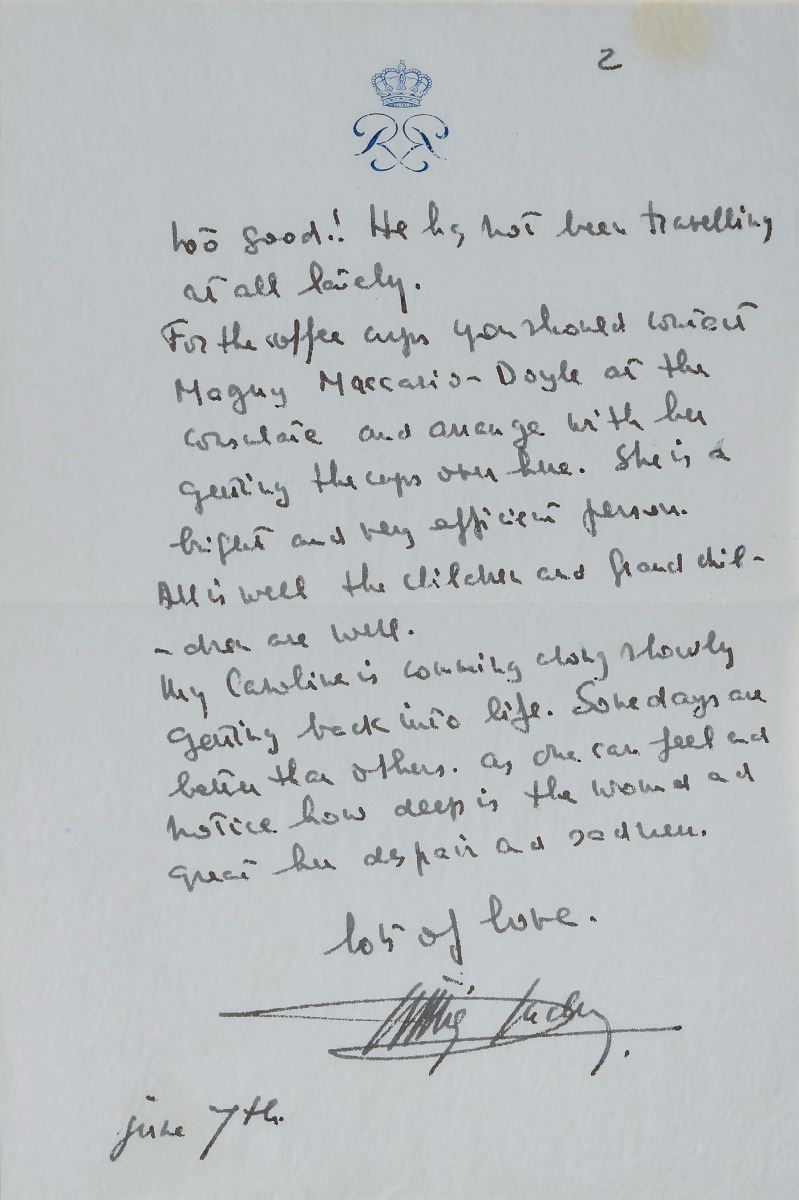 2
RR
too good!! He has not been travelling
at all lately.
For the coffee cups you should contact
Magny Maccario-Doyle at the
consulate and arrange with her
getting the cups over here. She is a
bright and very efficient person.
All is well the children and Grand chil-
-dren are well.
My Caroline is comming along slowly
getting back into life. Some days are
better than others. as one can feel and
notice how deep is the wound and
great her despair and sadness.
lots of love.
june 7th.